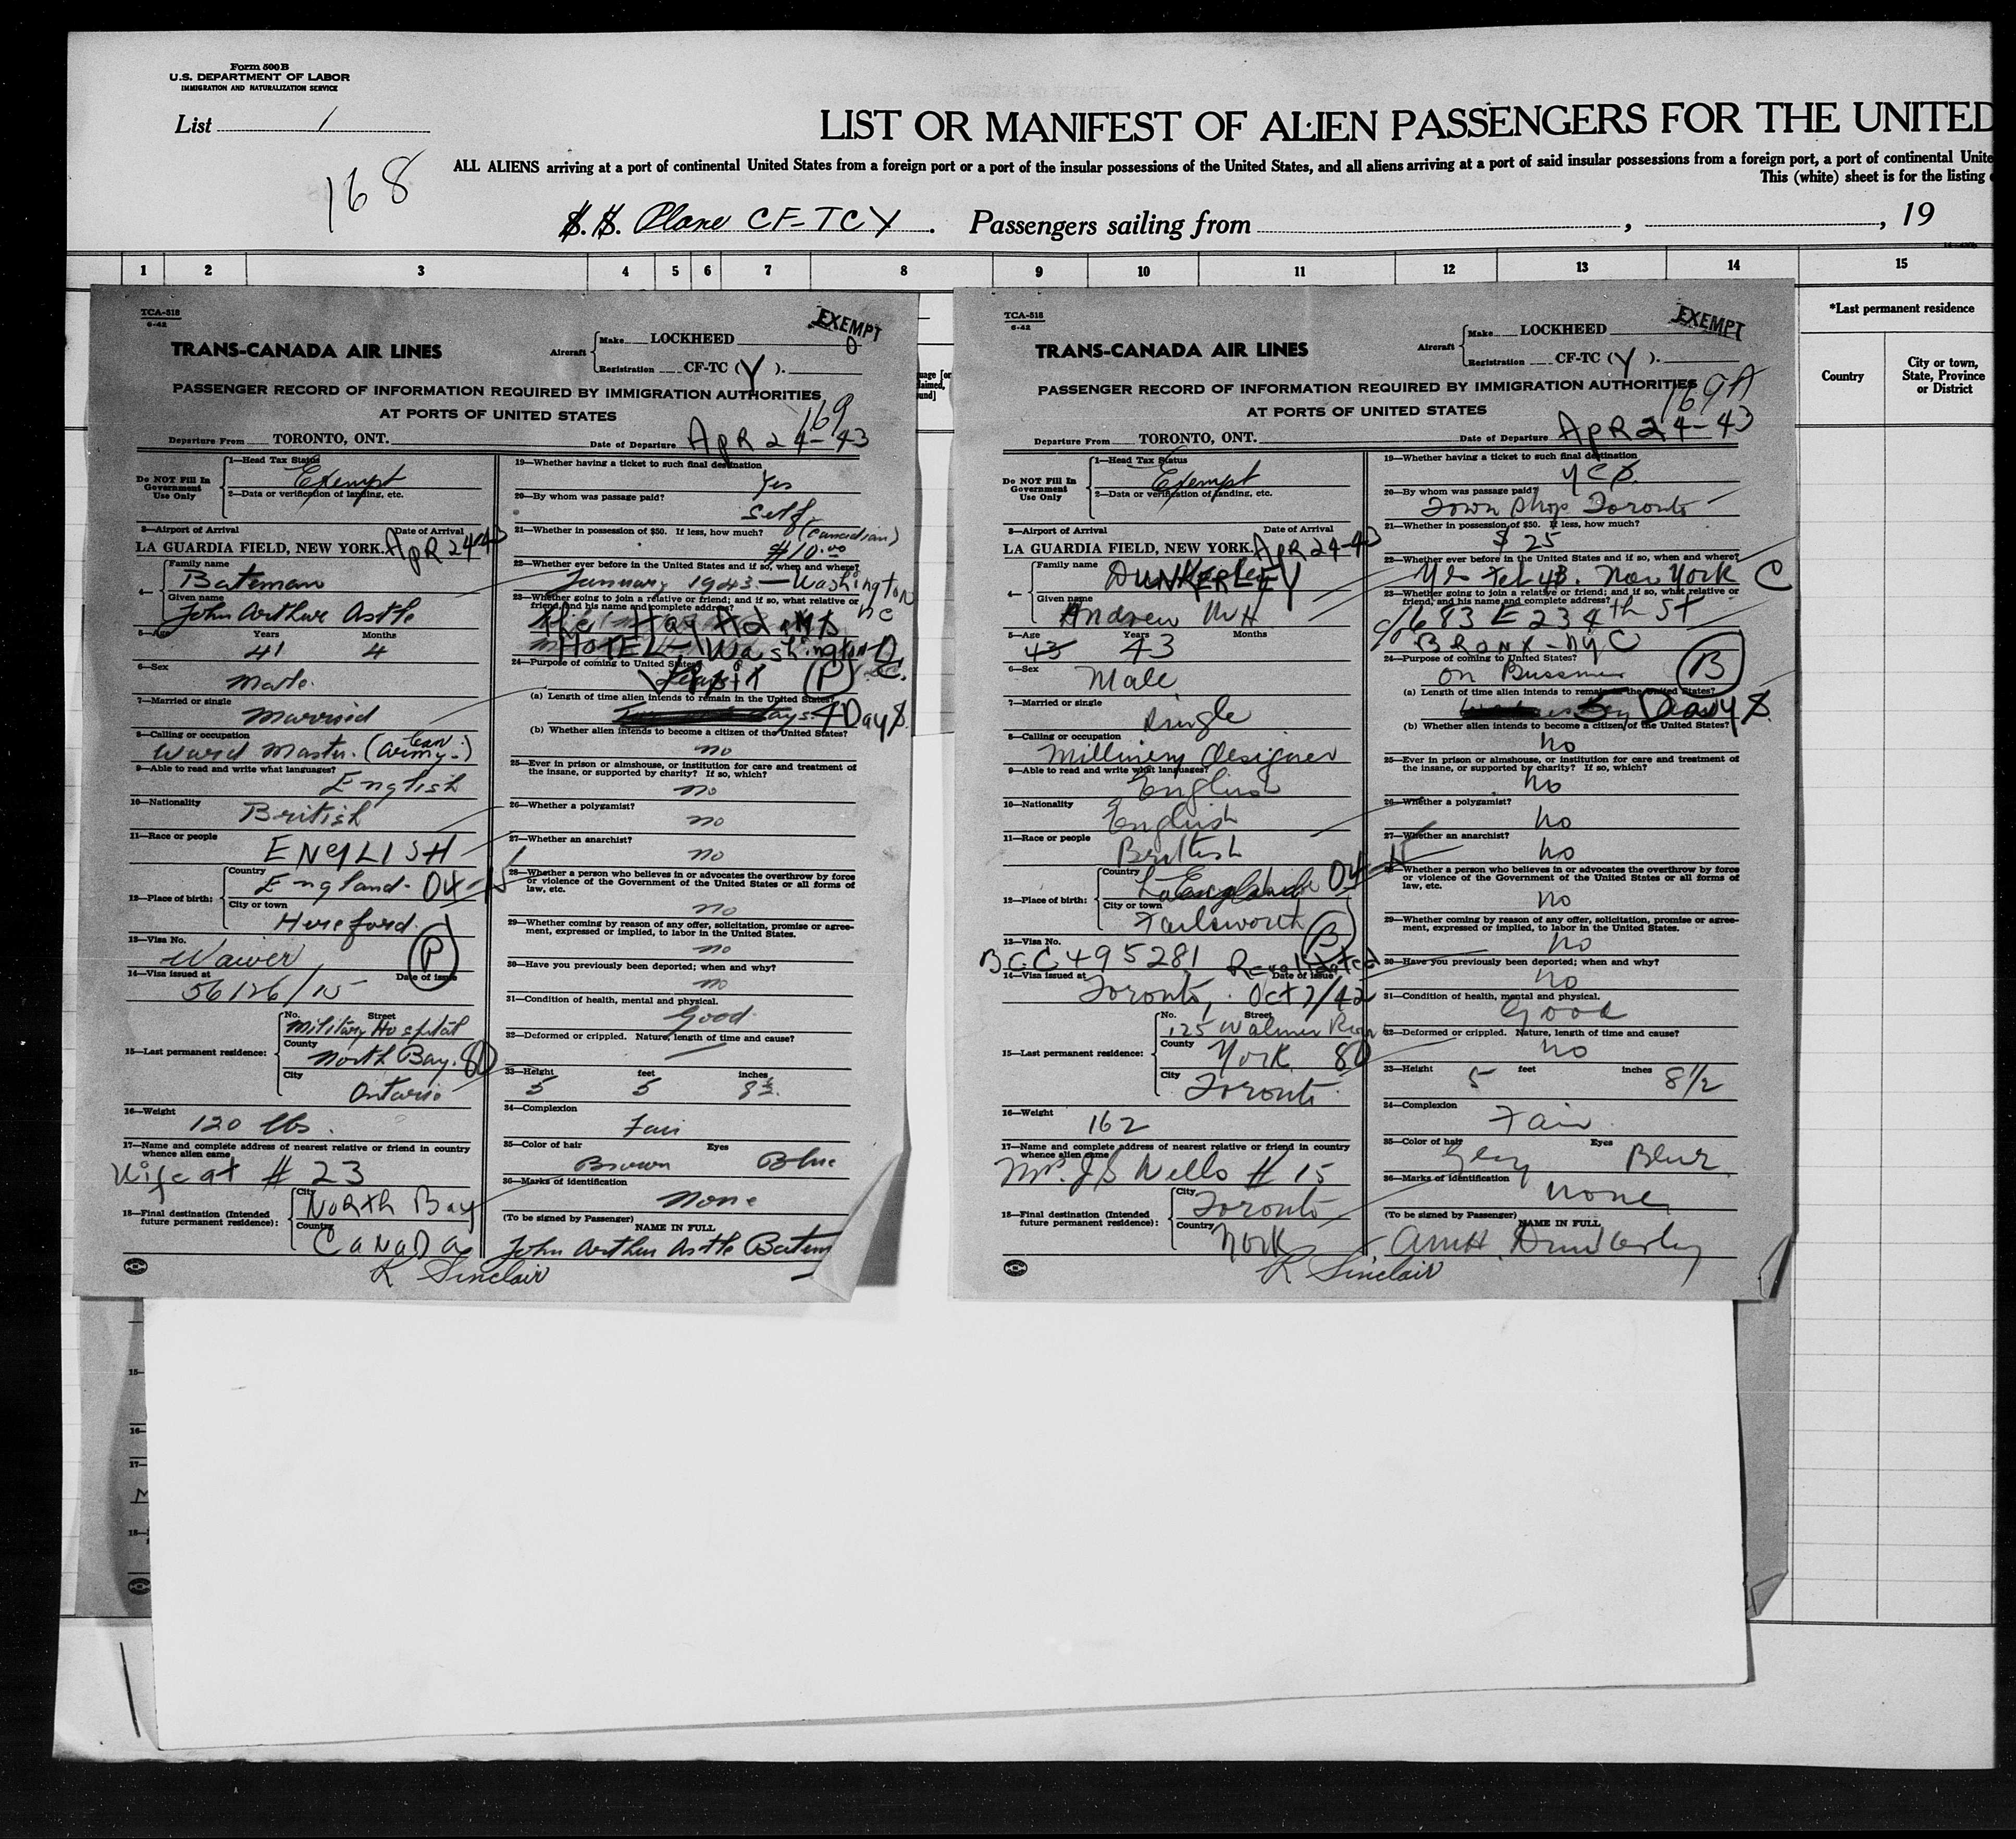 Form 500 B
U.S. DEPARTMENT OF LABOR
IMMIGRATION AND NATURALIZATION SERVICE
List 1
168
LIST OR MANIFEST OF ALIEN PASSENGERS FOR THE UNITED
ALL ALIENS arriving at a port of continental United States from a foreign port or a port of the insular possessions of the United States, and all aliens arriving at a port of said insular possessions from a foreign port, a port of continental Unite
This (white) sheet is for the listing
S. S. Plane CF-TCY. Passengers sailing from , , 19
1 2 3 4 5 6 7 8 9 10 11 12 13 14 15
*Last permanent residence
Country
City or town, State, Province or District
TCA-518
6-42
EXEMPT
TRANS-CANADA AIR LINES
Aircraft
Make LOCKHEED
Registration CF-TC (Y).
PASSENGER RECORD OF INFORMATION REQUIRED BY IMMIGRATION AUTHORITIES
AT PORTS OF UNITED STATES
169
Departure From TORONTO, ONT. Date of Departure ApR 24-43
Do NOT Fill In Government Use Only
1—Head Tax Status
Exempt
2—Data or verification of landing, etc.
3—Airport of Arrival Date of Arrival
LA GUARDIA FIELD, NEW YORK. ApR 24-43
4— Family name
Bateman
Given name
John Arthur Astle
5—Age Years Months
41 4
6—Sex
Male
7—Married or single
Married
8—Calling or occupation
Ward Master. (Can. Army.)
9—Able to read and write what languages?
English
10—Nationality
British
11—Race or people
ENGLISH
12—Place of birth:
Country
England. 04-15
City or town
Hereford.
13—Visa No.
Waiver
P
14—Visa issued at Date of issue
56126/15
15—Last permanent residence:
No. Street
Military Hospital
County
North Bay. 80
City
Ontario
16—Weight
120 lbs.
17—Name and complete address of nearest relative or friend in country whence alien came
Wife at # 23
18—Final destination (Intended future permanent residence):
City
North Bay
Country
Canada
19—Whether having a ticket to such final destination
Yes
20—By whom was passage paid?
Self
21—Whether in possession of $50. If less, how much? (Canadian)
$10.00
22—Whether ever before in the United States and if so, when and where?
January 1943 — Washington
DC
23—Whether going to join a relative or friend; and if so, what relative or friend, and his name and complete address?
Hay Adams
HOTEL, Washington D.C.
24—Purpose of coming to United States?
P
(a) Length of time alien intends to remain in the United States?
Days
(b) Whether alien intends to become a citizen of the United States?
no
25—Ever in prison or almshouse, or institution for care and treatment of the insane, or supported by charity? If so, which?
no
26—Whether a polygamist?
no
27—Whether an anarchist?
no
28—Whether a person who believes in or advocates the overthrow by force or violence of the Government of the United States or all forms of law, etc.
no
29—Whether coming by reason of any offer, solicitation, promise or agreement, expressed or implied, to labor in the United States.
no
30—Have you previously been deported; when and why?
no
31—Condition of health, mental and physical.
Good
32—Deformed or crippled. Nature, length of time and cause?
33—Height feet inches
5 5 8½
34—Complexion
Fair
35—Color of hair Eyes
Brown Blue
36—Marks of identification
None
(To be signed by Passenger) NAME IN FULL
John Arthur Astle Batem
R Sinclair
TCA-518
6-42
EXEMPT
TRANS-CANADA AIR LINES
Aircraft
Make LOCKHEED
Registration CF-TC (Y).
PASSENGER RECORD OF INFORMATION REQUIRED BY IMMIGRATION AUTHORITIES
AT PORTS OF UNITED STATES
169A
Departure From TORONTO, ONT. Date of Departure ApR 24-43
Do NOT Fill In Government Use Only
1—Head Tax Status
Exempt
2—Data or verification of landing, etc.
3—Airport of Arrival Date of Arrival
LA GUARDIA FIELD, NEW YORK. ApR 24-43
4— Family name
DUNKERLEY
Given name
Andrew M H
5—Age Years Months
43 43
6—Sex
Male
7—Married or single
Single
8—Calling or occupation
Millinery Designer
9—Able to read and write what languages?
English
10—Nationality
English
11—Race or people
British
12—Place of birth:
Country
04
City or town
Failsworth
13—Visa No.
B
BCC 495281 Revalidated
14—Visa issued at Date of issue
Toronto, Oct 7/42
15—Last permanent residence:
No. Street
125 Walmer Road
County
York 80
City
Toronto
16—Weight
162
17—Name and complete address of nearest relative or friend in country whence alien came
Mrs. J S Wells # 15
18—Final destination (Intended future permanent residence):
City
Toronto
Country
York
19—Whether having a ticket to such final destination
yes
20—By whom was passage paid?
Town Shop Toronto
21—Whether in possession of $50. If less, how much?
$ 25
22—Whether ever before in the United States and if so, when and where?
Yes Feb 43. New York C
23—Whether going to join a relative or friend; and if so, what relative or friend, and his name and complete address?
c/o 683 E 234th St
BRONX-NYC
24—Purpose of coming to United States?
on Bussiness B
(a) Length of time alien intends to remain in the United States?
5 Days
(b) Whether alien intends to become a citizen of the United States?
no
25—Ever in prison or almshouse, or institution for care and treatment of the insane, or supported by charity? If so, which?
no
26—Whether a polygamist?
no
27—Whether an anarchist?
no
28—Whether a person who believes in or advocates the overthrow by force or violence of the Government of the United States or all forms of law, etc.
no
29—Whether coming by reason of any offer, solicitation, promise or agreement, expressed or implied, to labor in the United States.
no
30—Have you previously been deported; when and why?
no
31—Condition of health, mental and physical.
Good
32—Deformed or crippled. Nature, length of time and cause?
no
33—Height feet inches
5 8 1/2
34—Complexion
Fair
35—Color of hair Eyes
Grey Blue
36—Marks of identification
none
(To be signed by Passenger) NAME IN FULL
AMH. Dunkerley
R Sinclair
15—
16—
17—
18—